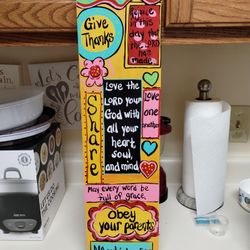 Give
Thanks
this is
day
the LORD
has
made.
Love the
LORD your
God with
all your
heart,
soul,
and mind
Share
Love
one
another
May every word be
full of grace.
Obey
your parents